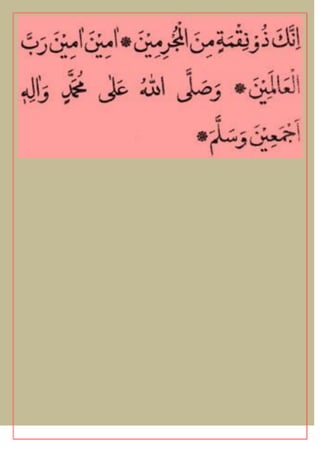 اِنَّكَ ذُوْ نِقْمَةٍ مِنَ الْمُجْرِمِيْنَ * اٰمِيْنَ اٰمِيْنَ رَبَّ
الْعَالَمِيْنَ * وَصَلَّى اللّٰهُ عَلٰى مُحَمَّدٍ وَاٰلِهٖ
اَجْمَعِيْنَ وَسَلَّمَ *